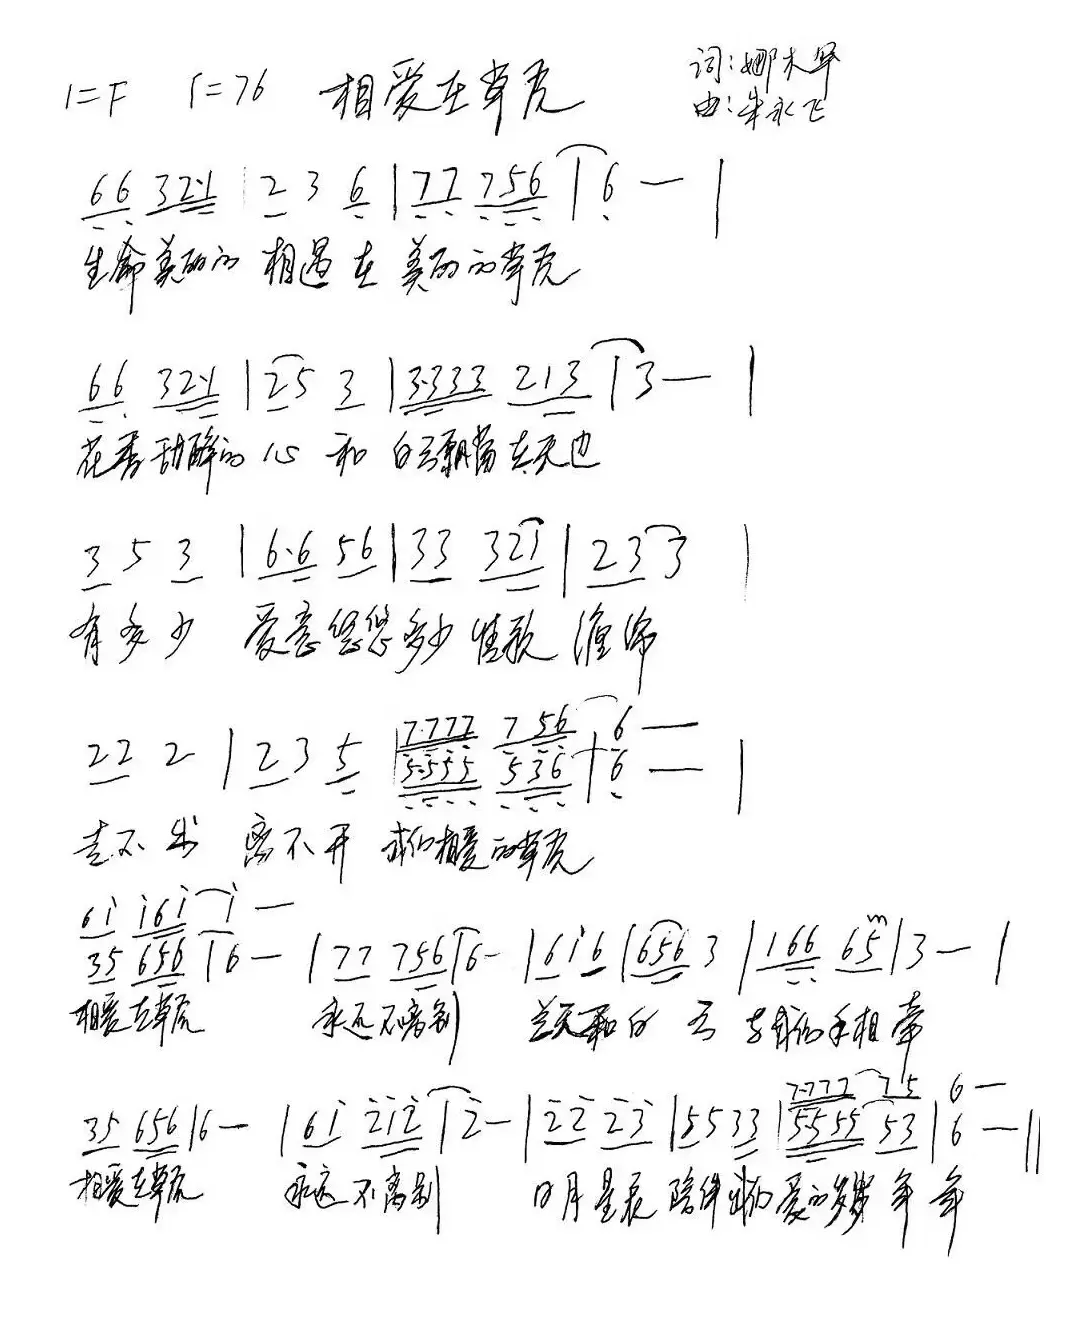 1=F ♩=76 相爱在草尧
词:娜木罕
曲:朱永飞
66 321 | 2 3 6 | 77 756 | 6 — |
生命美丽的 相遇在 美丽的草尧
66 321 | 25 3 | 3·333 213 | 3 — |
花香甜醉的 心 和 白云飘荡在天边
3 5 3 | 6·6 56 | 33 321 | 23 3 |
有多少 爱意悠悠 多少情歌 缠绵
7·777 756 6 —
22 2 | 2 3 5 | 5·555 536 | 6 — |
走不出 离不开 我们相爱的草尧
61 161 1 —
35 656 | 6 — | 77 756 | 6 - | 616 | 656 3 | 166 65 | 3 — |
相爱在草尧 永远不离别 兰天和白 云 与我们手相牵
7·777 75 6 —
35 656 | 6 — | 61 212 | 2 - | 22 23 | 55 33 | 55 55 53 | 6 — ||
相爱在草尧 永远不离别 日月星辰 陪伴我们 爱的岁岁 年 年